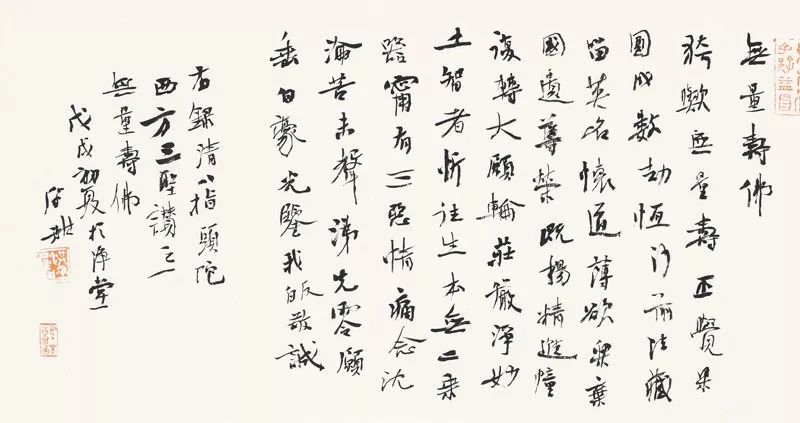 無量壽佛
猗歟無量壽正覺果
圓成數劫恆河前法藏
留英名懷道薄欲樂棄
國遺尊榮既揚精進幢
復轉大願輪莊嚴淨妙
土智者忻往生本無二乘
路甯有三惡情痛念沈
淪苦未聲涕先零願
垂白豪光鑒我皈敬誠
右錄清八指頭陀
西方三聖讚之一
無量壽佛
戊戌初夏於淨堂